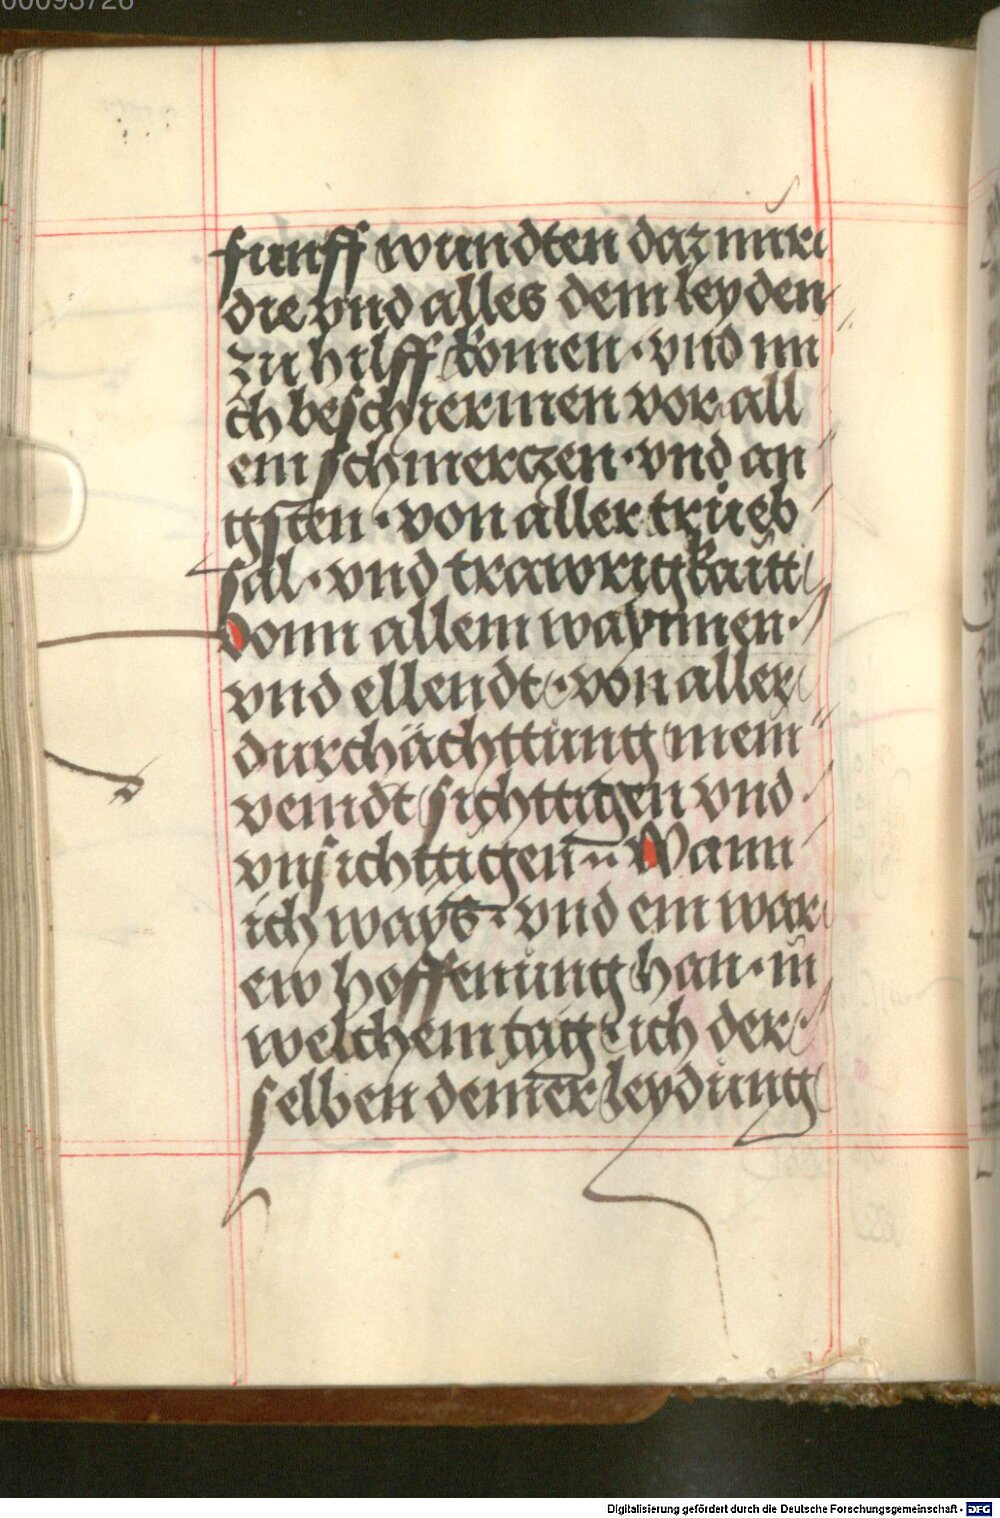 00093726
funff wundten daz mir
die vnd alles dein leyden
zu hilff komen · vnd mi
ch beschiermen vor all
em schmerczen · vnd an
gsten · von aller trüeb
sal · vnd trawrigkaitt
vonn allem waynnen ·
vnd ellendt · von aller
durchächttung mein
veindt sichttigen vnd
vnsichttigen ·· Wann
ich ways · vnd ein war
ew hoffenung han · in
welchem tag · ich der
selben deiner leydung
Digitalisierung gefördert durch die Deutsche Forschungsgemeinschaft - DFG